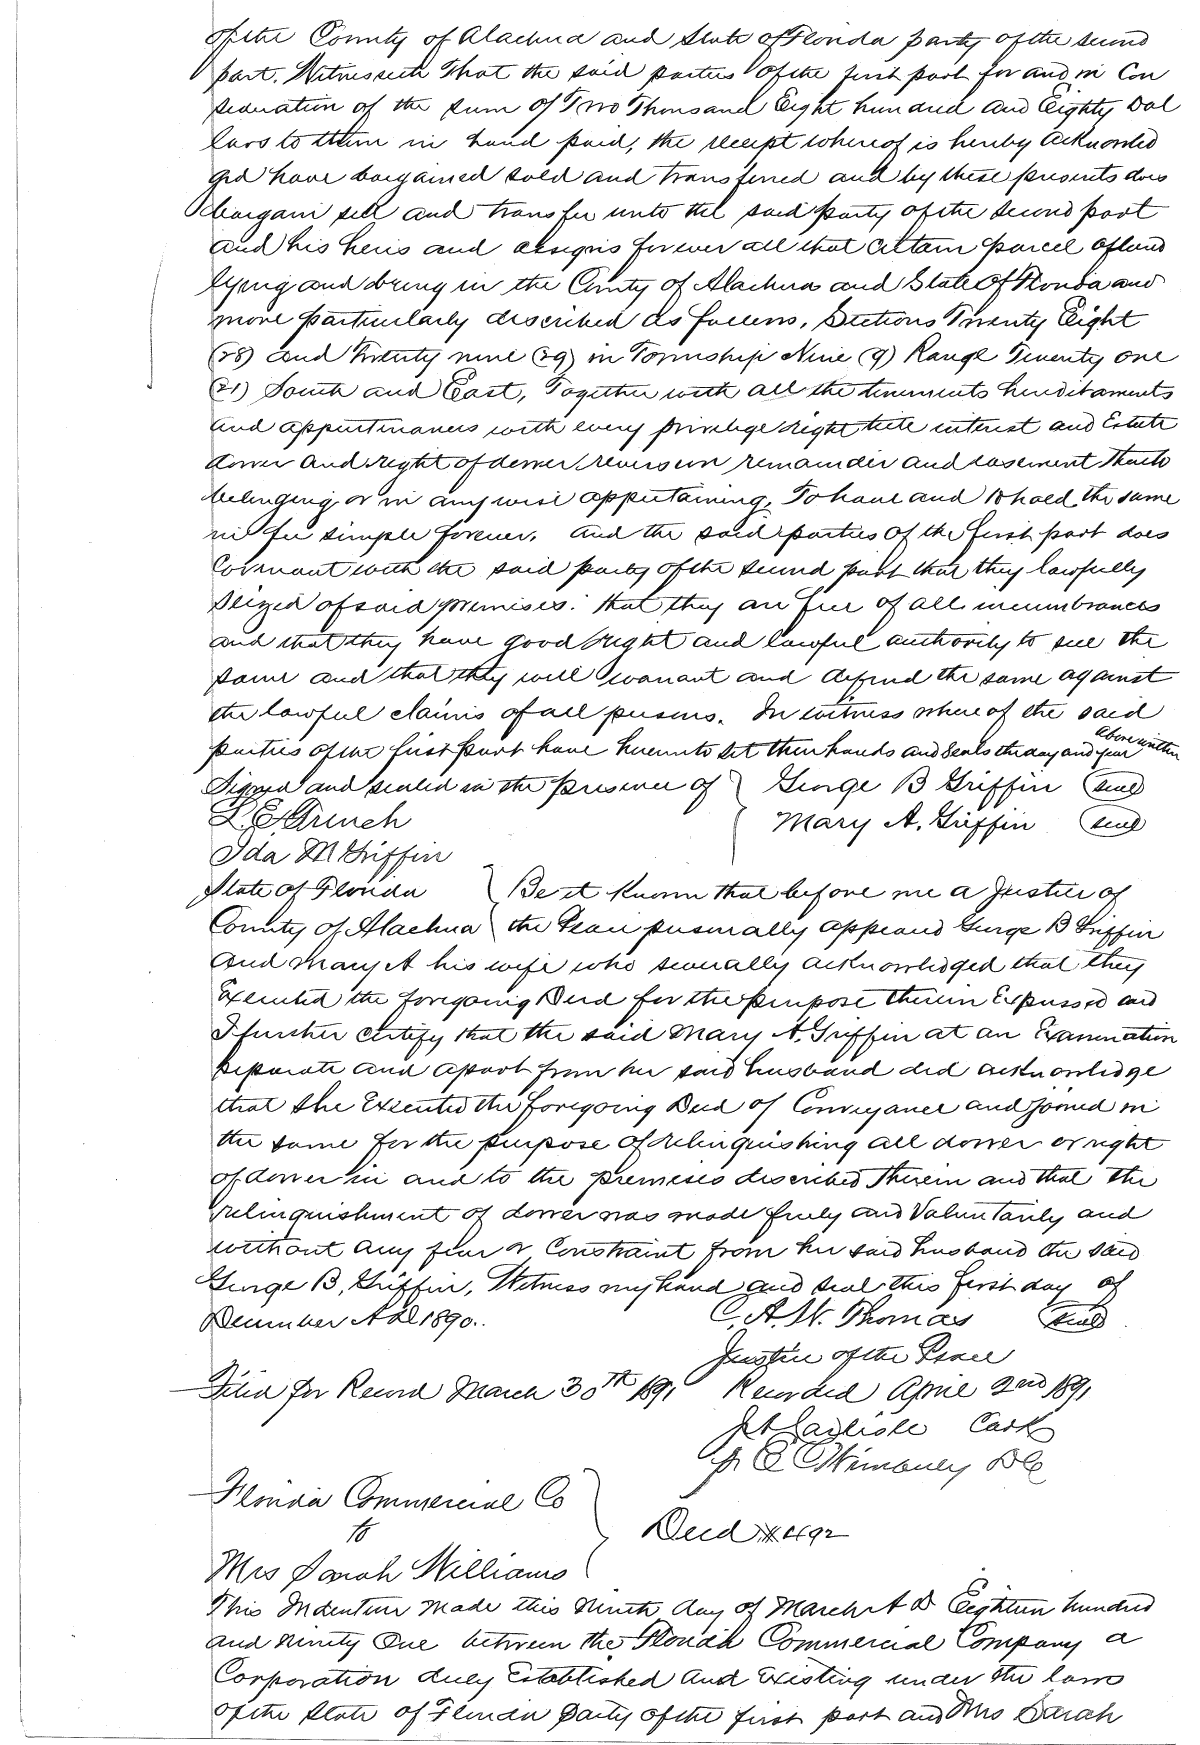 of the County of Alachua and State of Florida party of the second
part. Witnesseth That the said parties of the first part for and in Con
sideration of the sum of Two Thousand Eight hundred and Eighty Dol
lars to them in hand paid, the receipt whereof is hereby acknowled
ged have bargained sold and transferred and by these presents does
bargain sell and transfer unto the said party of the second part
and his heirs and assigns forever all that certain parcel of land
lying and being in the County of Alachua and State of Florida and
more particularly described as follows, Sections Twenty Eight
(28) and Twenty nine (29) in Township Nine (9) Range Twenty one
(21) South and East, Together with all the tenements hereditaments
and appurtenances with every privilege right title interest and Estate
dower and right of dower reversion remainder and easement thereto
belonging or in any wise appertaining, To have and to hold the same
in fee simple forever. and the said parties of the first part does
Covenant with the said party of the second part that they lawfully
seized of said premises: that they are free of all incumbrances
and that they have good right and lawful authority to sell the
same and that they will warrant and defend the same against
the lawful claims of all persons. In witness where of the said
parties of the first part have hereunto set their hands and seals the day and year above written
Signed and sealed in the presence of } George B Griffin (seal)
Mary A. Griffin (seal)
Ida M Griffin
State of Florida } Be it Known that before me a Justice of
County of Alachua } the Peace personally appeared George B Griffin
and Mary A his wife who severally acknowledged that they
Executed the foregoing Deed for the purpose therein Expressed and
I further certify that the said Mary A. Griffin at an Examination
separate and apart from her said husband did acknowledge
that she Executed the foregoing Deed of Conveyance and joined in
the same for the purpose of relinquishing all dower or right
of dower in and to the premises described therein and that the
relinquishment of dower was made freely and Voluntarily and
without any fear or Constraint from her said husband the said
George B. Griffin, Witness my hand and seal this first day of
December A D 1890.. C. A. W. Thomas (seal)
Justice of the Peace
Filed for Record March 30th 1891 Recorded April 2nd 1891
Florida Commercial Co
to } Deed #4492
Mrs Sarah Williams
This Indenture made this Ninth day of March A D Eighteen hundred
and ninety One between the Florida Commercial Company a
Corporation duly Established and Existing under the laws
of the State of Florida party of the first part and Mrs Sarah